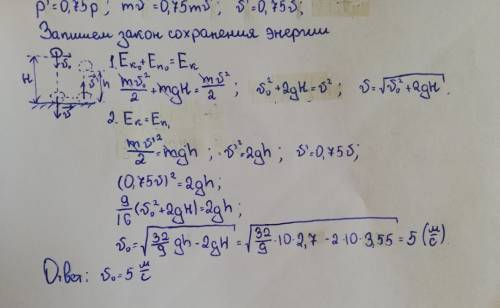 p'=0,75p; mv'=0,75mv; v'=0,75v.
Запишем закон сохранения энергии
v₀
H
h
v'
v
1. Eк₀+Eп₀=Eк
mv₀²/2+mgH=mv²/2; v₀²+2gH=v²; v=√(v₀²+2gH).
2. Eк=Eп,
mv'²/2=mgh; v'²=2gh; v'=0,75v;
(0,75v)²=2gh;
9/16(v₀²+2gH)=2gh;
v₀=√(32/9 gh-2gH)=√(32/9·10·2,7-2·10·3,55)=5(м/с).
Ответ: v₀=5 м/с